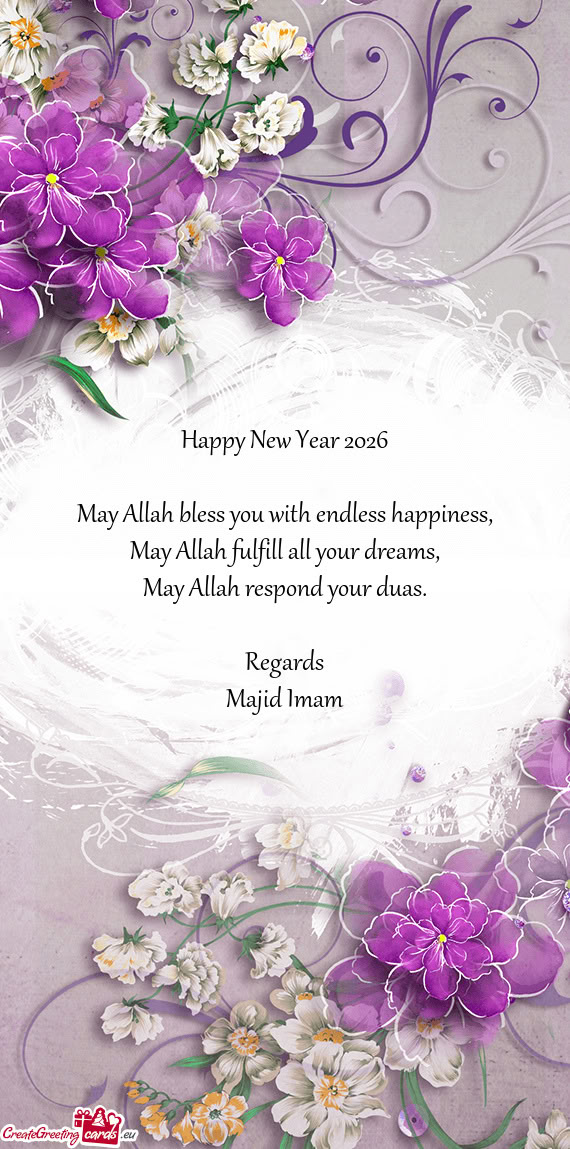 Happy New Year 2026
May Allah bless you with endless happiness,
May Allah fulfill all your dreams,
May Allah respond your duas.
Regards
Majid Imam
CreateGreeting cards .eu